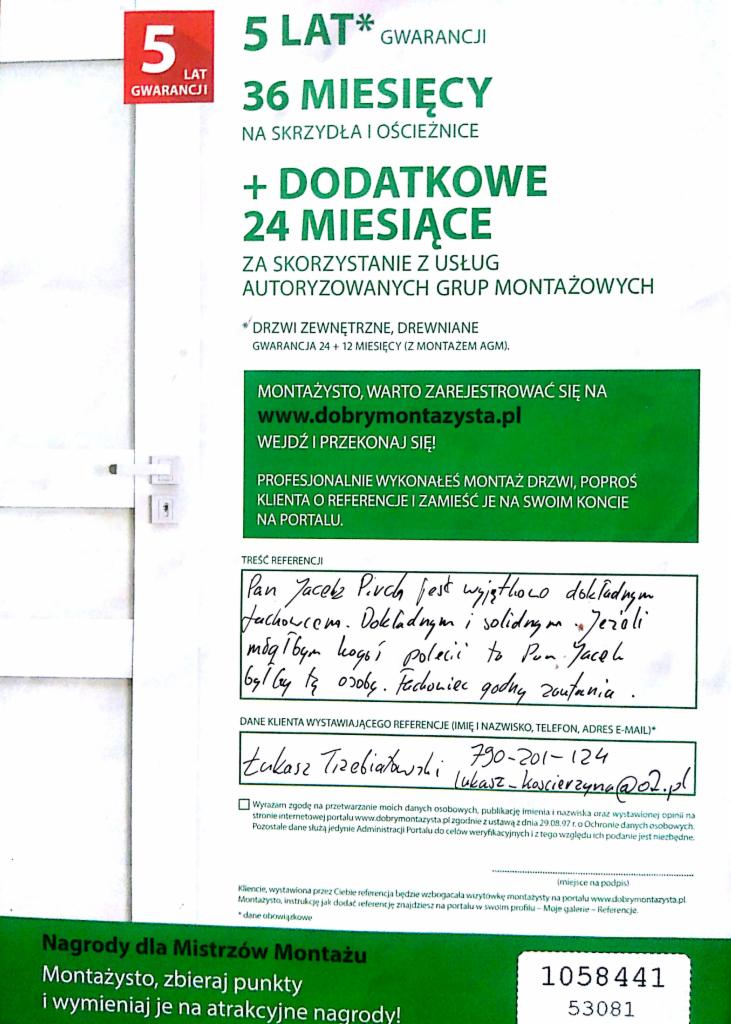 5 LAT GWARANCJI
5 LAT* GWARANCJI
36 MIESIĘCY
NA SKRZYDŁA I OŚCIEŻNICE
+ DODATKOWE
24 MIESIĄCE
ZA SKORZYSTANIE Z USŁUG
AUTORYZOWANYCH GRUP MONTAŻOWYCH
* DRZWI ZEWNĘTRZNE, DREWNIANE
GWARANCJA 24 + 12 MIESIĘCY (Z MONTAŻEM AGM).
MONTAŻYSTO, WARTO ZAREJESTROWAĆ SIĘ NA
www.dobrymontazysta.pl
WEJDŹ I PRZEKONAJ SIĘ!
PROFESJONALNIE WYKONAŁEŚ MONTAŻ DRZWI, POPROŚ
KLIENTA O REFERENCJE I ZAMIEŚĆ JE NA SWOIM KONCIE
NA PORTALU.
TREŚĆ REFERENCJI
Pan Jacek Pirch jest wyjątkowo dokładnym
fachowcem. Dokładnym i solidnym. Jeżeli
mógłbym kogoś polecić to Pan Jacek
byłby tą osobą. Fachowiec godny zaufania.
DANE KLIENTA WYSTAWIAJĄCEGO REFERENCJE (IMIĘ I NAZWISKO, TELEFON, ADRES E-MAIL)*
Łukasz Trzebiatowski 790-201-124
lukasz_koscierzyna@o2.pl
Wyrażam zgodę na przetwarzanie moich danych osobowych, publikację imienia i nazwiska oraz wystawionej opinii na
stronie internetowej portalu www.dobrymontazysta.pl zgodnie z ustawą z dnia 29.08.97 r. o Ochronie danych osobowych.
Pozostałe dane służą jedynie Administracji Portalu do celów weryfikacyjnych i z tego względu ich podanie jest niezbędne.
(miejsce na podpis)
Kliencie, wystawiona przez Ciebie referencja będzie wzbogacała wizytówkę montażysty na portalu www.dobrymontazysta.pl.
Montażysto, instrukcję jak dodać referencję znajdziesz na portalu w swoim profilu – Moje galerie – Referencje.
* dane obowiązkowe
Nagrody dla Mistrzów Montażu
Montażysto, zbieraj punkty
i wymieniaj je na atrakcyjne nagrody!
1058441
53081